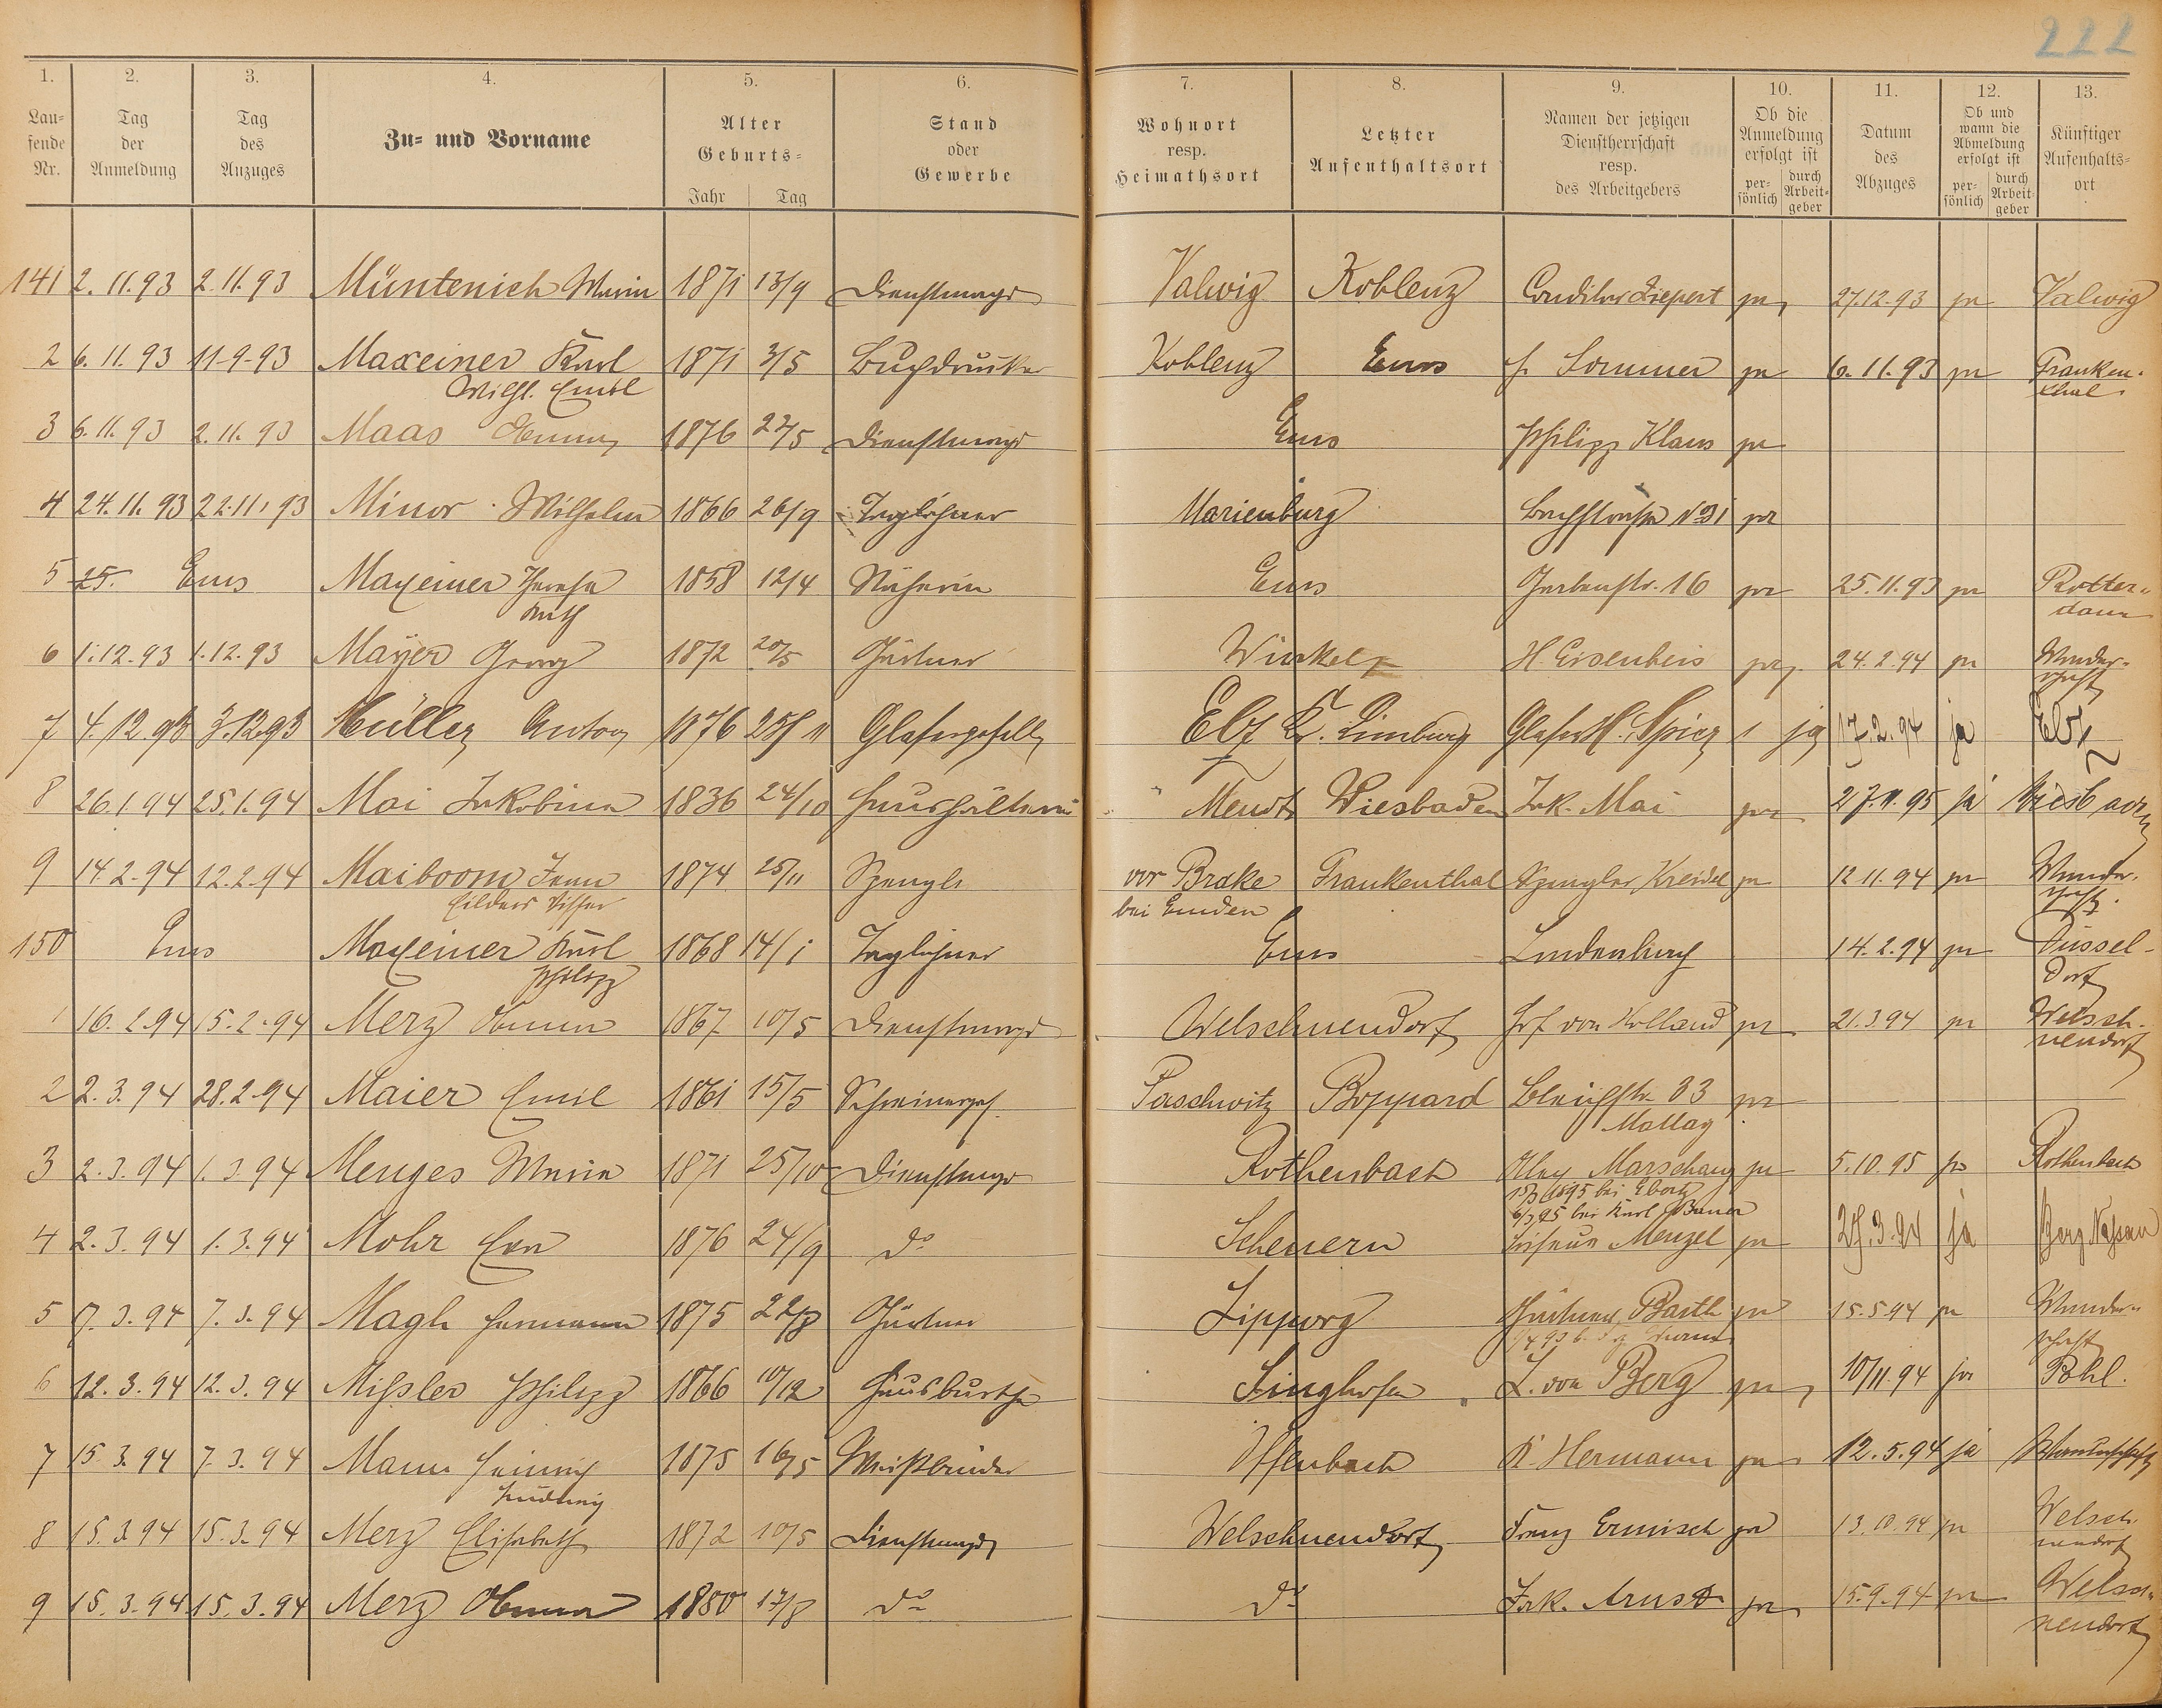 222
1. 2. 3. 4. 5. 6. 7. 8. 9. 10. 11. 12. 13.
Laufende Nr. Tag der Anmeldung Tag des Anzuges Zu- und Vorname Alter Geburts- Jahr Tag Stand oder Gewerbe Wohnort resp. Heimathsort Letzter Aufenthaltsort Namen der jetzigen Dienstherrschaft resp. des Arbeitgebers Ob die Anmeldung erfolgt ist persönlich durch Arbeitgeber Datum des Abzuges Ob und wann die Abmeldung erfolgt ist persönlich durch Arbeitgeber Künftiger Aufenthaltsort
141 2.11.93 2.11.93 Müntenich Maria 1871 13/9 Dienstmagd Valwig Koblenz Conditor Ziepert ja 27.12.93 ja Valwig
2 6.11.93 11-9-93 Maxeiner Karl 1871 3/5 Buchdrucker Koblenz Ems H. Sommer ja 6.11.93 ja Franken-
Wilh. Emil thal
3 6.11.93 2.11.93 Maas Anna 1876 22/5 Dienstmagd Ems Philipp Klaus ja
4 24.11.93 22.11.93 Minor Wilhelm 1866 26/9 Taglöhner Marienburg Bachstraße No 31 ja
5 25. Ems Maxeiner Theresa 1858 12/4 Näherin Ems Gartenstr. 16 ja 25.11.93 ja Rotter-
Ruth dam
6 1.12.93 1.12.93 Mayer Georg 1872 20/5 Gärtner Winkel H. Eisenbeis ja 24.2.94 ja Wander-
schaft
7 4.12.93 3.12.93 Müller Anton 1876 25/11 Glasergeselle Elz Kr. Limburg Glaser H. Spier 1 ja 17.2.94 ja Elz
8 26.1.94 25.1.94 Mai Jakobina 1836 24/10 Haushälterin Meudt Wiesbaden Jak. Mai ja 27.11.95 ja Wiesbaden
9 14.2.94 12.2.94 Maiboom Jann 1874 25/11 Spengler vor Brake Frankenthal Spengler Kreidel ja 12.11.94 ja Wander-
Eilders Visser bei Emden schaft.
150 Ems Maxeiner Karl 1868 14/1 Taglöhner Ems Lindenbach 14.2.94 ja Düssel-
Philipp dorf
1 16.2.94 15.2.94 Merz Anna 1867 10/5 Dienstmagd Welschneudorf Hof von Holland ja 21.3.94 ja Welsch-
neudorf
2 2.3.94 28.2.94 Maier Emil 1861 15/5 Schreinerges. Paschwitz Boppard Bleichstr. 33 ja
Mallay
3 2.3.94 1.3.94 Menges Maria 1871 25/10 Dienstmagd Rothenbach Marschang ja 5.10.95 ja Rothenbach
1895 bei Ebertz
95 bei Karl Bauer
4 2.3.94 1.3.94 Mohr Eva 1876 24/9 do Scheuern Friseur Menzel ja 28.3.94 ja Berg Nassau
5 7.3.94 7.3.94 Magh Hermann 1875 22/8 Gärtner Lipporg Gärtner Barth ja 15.5.94 ja Wander-
schaft
6 12.3.94 12.3.94 Mißler Philipp 1866 10/12 Hausbursche Singhofen L. von Berg ja 10/11.94 ja Pohl.
7 15.3.94 7.3.94 Mann Heinrich 1875 16/5 Weißbinder Offenbach K. Hermann ja 12.5.94 ja Wanderschaft
Ludwig
8 15.3.94 15.3.94 Merz Elisabeth 1872 10/5 Dienstmagd Welschneudorf Franz Ermisch ja 13.10.94 ja Welsch-
neudorf
9 15.3.94 15.3.94 Merz Anna 1880 17/8 do do Jak. Arnst ja 15.9.94 ja Welsch-
neudorf